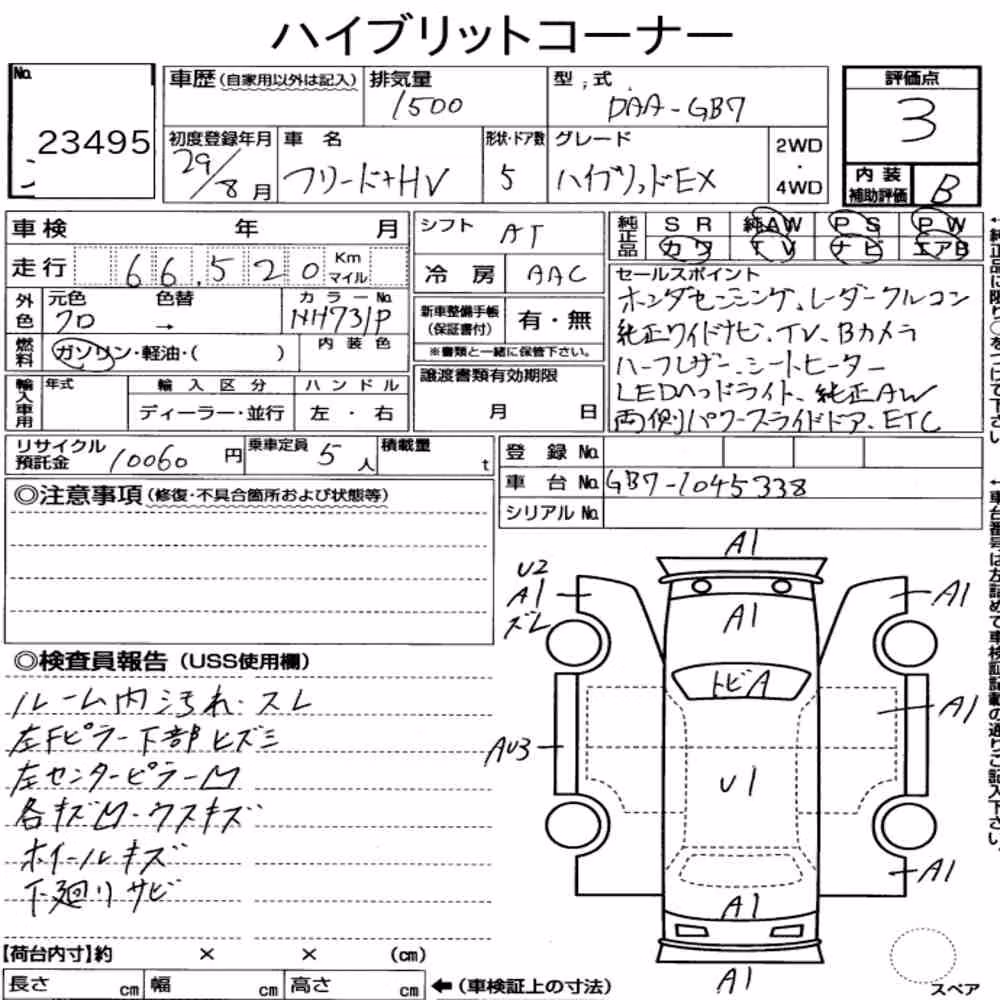 ハイブリットコーナー
No.
23495
車歴(自家用以外は記入)
排気量
1500
型 式
DAA-GB7
評価点
3
初度登録年月
29/8月
車 名
フリード+HV
形状・ドア数
5
グレード
ハイブリッドEX
2WD
・
4WD
内 装
補助評価
B
車検 年 月
走行 66,520 Km
マイル
外色
元色
クロ
色替
→
カラーNo.
NH731P
内 装 色
燃料
ガソリン・軽油・( )
輸入車用
年式
輸 入 区 分
ディーラー・並行
ハ ン ド ル
左 ・ 右
シフト
AT
冷 房
AAC
新車整備手帳
(保証書付)
有・無
※書類と一緒に保管下さい。
譲渡書類有効期限
月 日
純正品
S R
純AW
P S
P W
カワ
T V
ナビ
エアB
セールスポイント
ホンダセンシング、レーダークルコン
純正ワイドナビ、TV、Bカメラ
ハーフレザー、シートヒーター
LEDヘッドライト、純正AW
両側パワースライドドア、ETC
リサイクル
預託金
10060 円
乗車定員
5 人
積載量
t
登 録 No.
車 台 No.
GB7-1045338
シリアル No.
◎注意事項(修復・不具合箇所および状態等)
◎検査員報告(USS使用欄)
ルーム内汚れ・スレ
左Fピラー下部ヒズミ
左センターピラー凹
各キズ凹・ウスキズ
ホイールキズ
下廻りサビ
A1
U2
A1
ズレ
A1
A1
トビA
AU3
A1
U1
A1
A1
A1
スペア
【荷台内寸】約 × × (cm)
長さ cm
幅 cm
高さ cm
←(車検証上の寸法)
←純正品に限り○をつけて下さい
←車台番号は左詰めで車検証記載の通りご記入下さい。